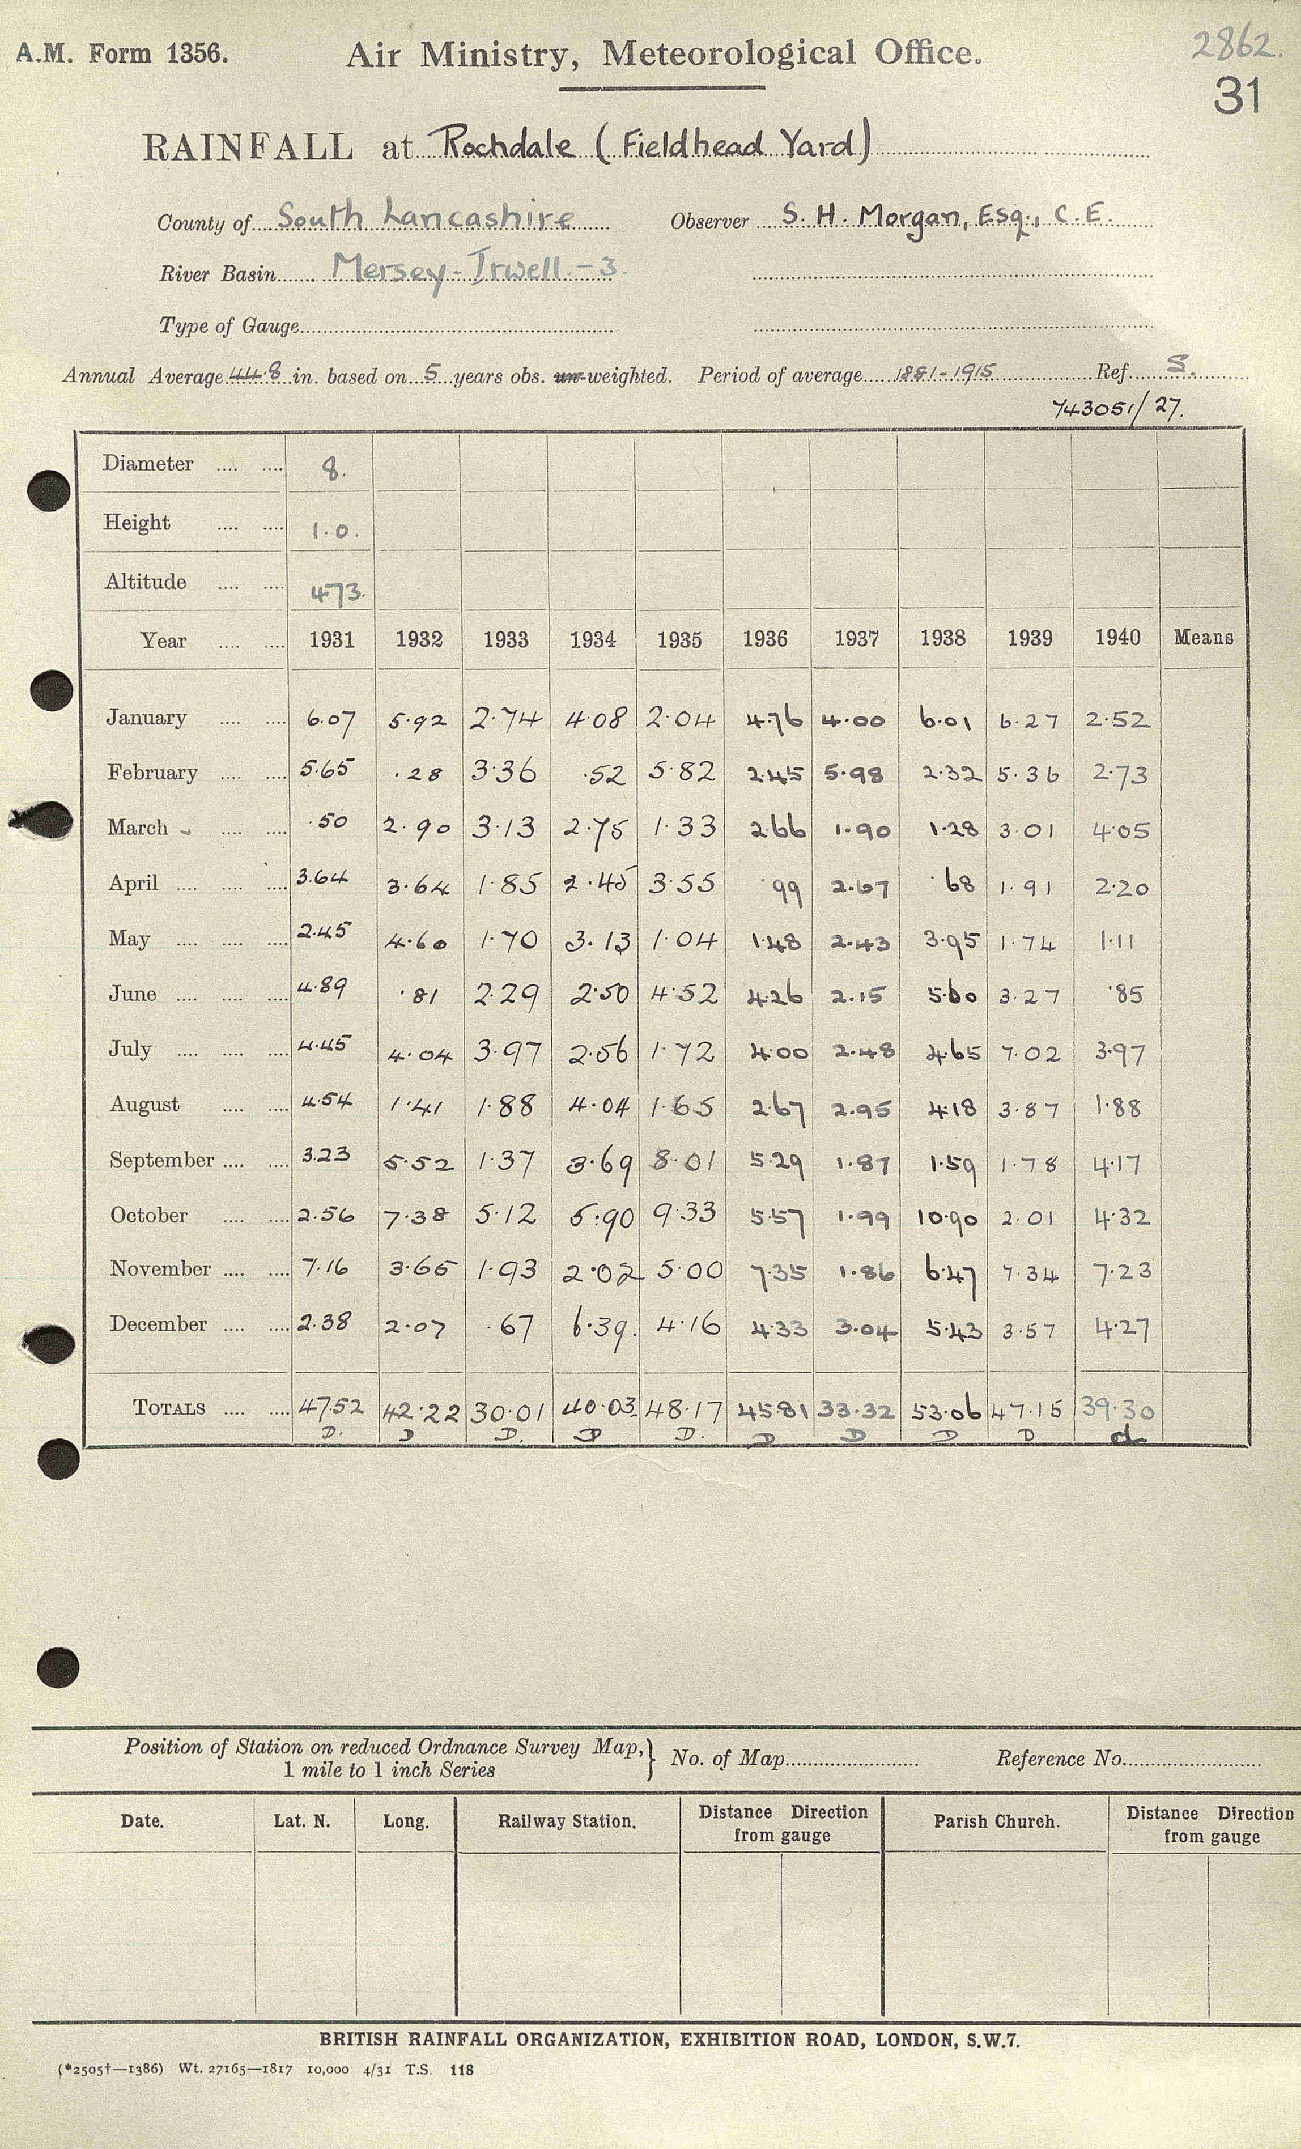 2862.
A.M. Form 1356. Air Ministry, Meteorological Office.
31
RAINFALL at Rochdale (Fieldhead Yard)
County of South Lancashire Observer S. H. Morgan, Esq., C.E.
River Basin Mersey-Irwell-3.
Type of Gauge
Annual Average 44.8 in. based on 5 years obs. un-weighted. Period of average 1881-1915 Ref. S.
743051/27.
Diameter 8.
Height 1.0.
Altitude 473.
Year 1931 1932 1933 1934 1935 1936 1937 1938 1939 1940 Means
January 6.07 5.92 2.74 4.08 2.04 4.76 4.00 6.01 6.27 2.52
February 5.65 .28 3.36 .52 5.82 2.45 5.98 2.32 5.36 2.73
March .50 2.90 3.13 2.75 1.33 2.66 1.90 1.28 3.01 4.05
April 3.64 3.64 1.85 2.45 3.55 .99 2.67 .68 1.91 2.20
May 2.45 4.60 1.70 3.13 1.04 1.48 2.43 3.95 1.74 1.11
June 4.89 .81 2.29 2.50 4.52 4.26 2.15 5.60 3.27 .85
July 4.45 4.04 3.97 2.56 1.72 4.00 2.48 4.65 7.02 3.97
August 4.54 1.41 1.88 4.04 1.65 2.67 2.95 4.18 3.87 1.88
September 3.23 5.52 1.37 3.69 8.01 5.29 1.87 1.59 1.78 4.17
October 2.56 7.38 5.12 5.90 9.33 5.57 1.99 10.90 2.01 4.32
November 7.16 3.65 1.93 2.02 5.00 7.35 1.86 6.47 7.34 7.23
December 2.38 2.07 .67 6.39. 4.16 4.33 3.04 5.43 3.57 4.27
TOTALS 47.52 42.22 30.01 40.03 48.17 45.81 33.32 53.06 47.15 39.30
D. D D. D D. D D D D d
Position of Station on reduced Ordnance Survey Map, } No. of Map Reference No.
1 mile to 1 inch Series
Date. Lat. N. Long. Railway Station. Distance Direction from gauge Parish Church. Distance Direction from gauge
BRITISH RAINFALL ORGANIZATION, EXHIBITION ROAD, LONDON, S.W.7.
(*2505†—1386) Wt. 27165—1817 10,000 4/31 T.S. 118